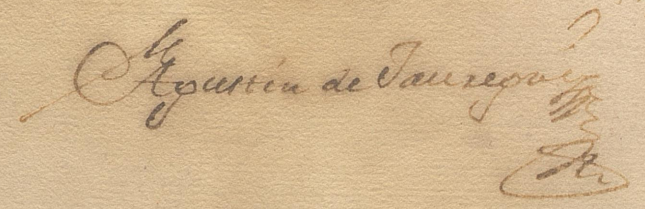 Agustín de Jauregui